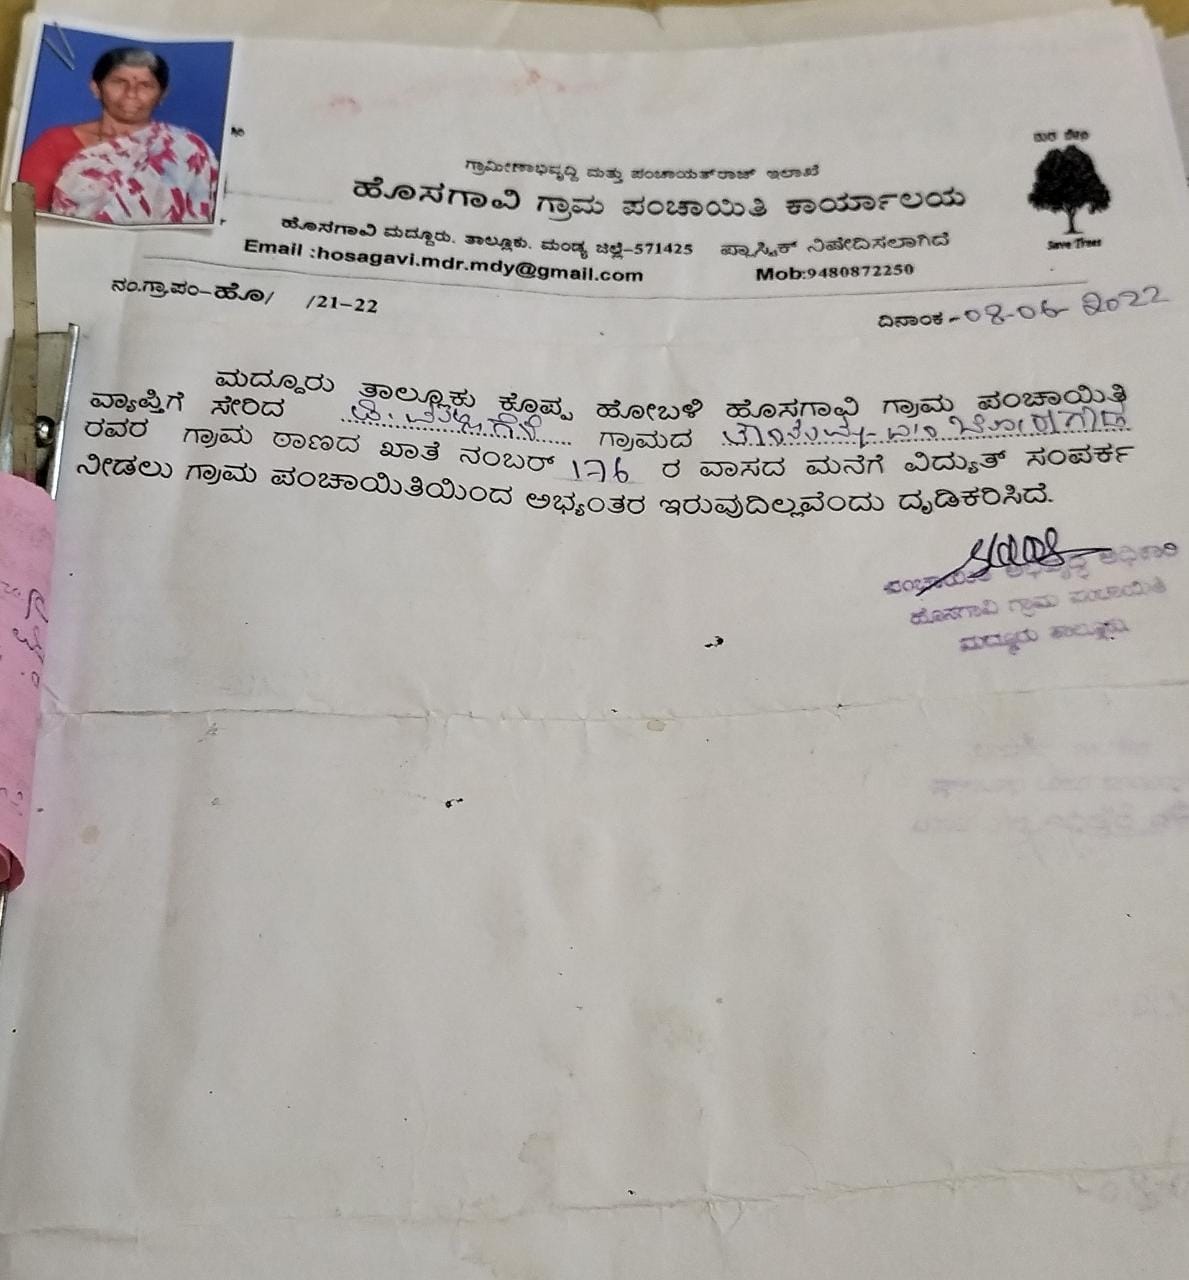 ಮರ ಬೆಳಸಿ
ಗ್ರಾಮೀಣಾಭಿವೃದ್ಧಿ ಮತ್ತು ಪಂಚಾಯತ್‌ರಾಜ್ ಇಲಾಖೆ
ಹೊಸಗಾವಿ ಗ್ರಾಮ ಪಂಚಾಯಿತಿ ಕಾರ್ಯಾಲಯ
ಹೊಸಗಾವಿ ಮದ್ದೂರು. ತಾಲ್ಲೂಕು. ಮಂಡ್ಯ ಜಿಲ್ಲೆ-571425 ಪ್ಲಾಸ್ಟಿಕ್ ನಿಷೇದಿಸಲಾಗಿದೆ
Save Trees
Email :hosagavi.mdr.mdy@gmail.com Mob:9480872250
ನಂ.ಗ್ರಾ.ಪಂ-ಹೊ/ /21-22
ದಿನಾಂಕ-08-06-2022
ಮದ್ದೂರು ತಾಲ್ಲೂಕು ಕೊಪ್ಪ ಹೋಬಳಿ ಹೊಸಗಾವಿ ಗ್ರಾಮ ಪಂಚಾಯಿತಿ
ವ್ಯಾಪ್ತಿಗೆ ಸೇರಿದ ಗ್ರಾಮದ
ರವರ ಗ್ರಾಮ ಠಾಣದ ಖಾತೆ ನಂಬರ್ 176 ರ ವಾಸದ ಮನೆಗೆ ವಿದ್ಯುತ್ ಸಂಪರ್ಕ
ನೀಡಲು ಗ್ರಾಮ ಪಂಚಾಯಿತಿಯಿಂದ ಅಭ್ಯಂತರ ಇರುವುದಿಲ್ಲವೆಂದು ದೃಡಿಕರಿಸಿದೆ.
ಪಂಚಾಯಿತಿ ಅಭಿವೃದ್ಧಿ ಅಧಿಕಾರಿ
ಹೊಸಗಾವಿ ಗ್ರಾಮ ಪಂಚಾಯಿತಿ
ಮದ್ದೂರು ತಾಲ್ಲೂಕು